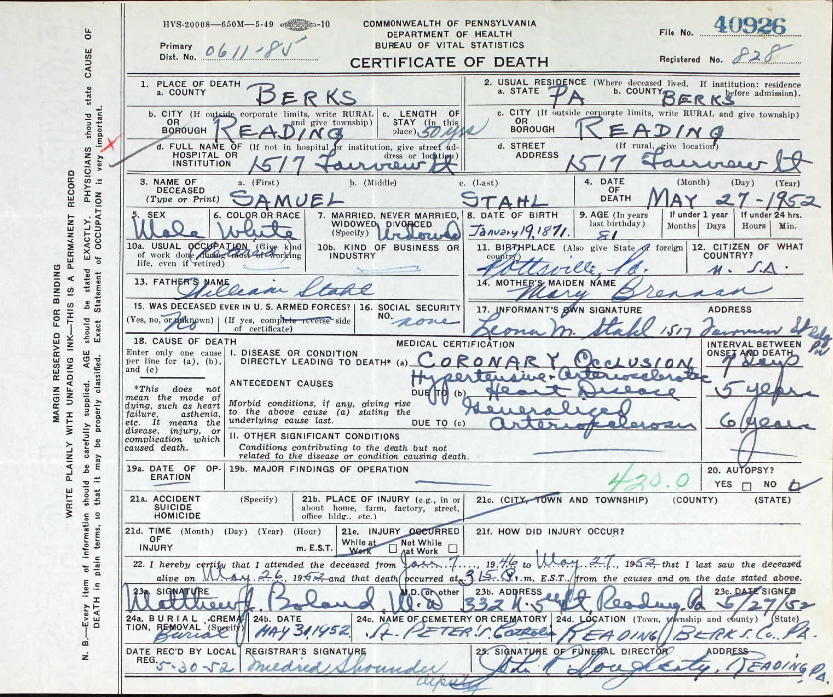 HVS-20008—650M—5-49 —10
COMMONWEALTH OF PENNSYLVANIA
DEPARTMENT OF HEALTH
BUREAU OF VITAL STATISTICS
CERTIFICATE OF DEATH
File No. 40926
Primary Dist. No. 0611-85
Registered No. 828
1. PLACE OF DEATH
a. COUNTY BERKS
2. USUAL RESIDENCE (Where deceased lived. If institution: residence before admission).
a. STATE PA b. COUNTY BERKS
b. CITY (If outside corporate limits, write RURAL and give township) OR BOROUGH READING
c. LENGTH OF STAY (in this place) 50 yrs
c. CITY (If outside corporate limits, write RURAL and give township) OR BOROUGH READING
d. FULL NAME OF (If not in hospital or institution, give street address or location) HOSPITAL OR INSTITUTION 1517 Fairview St
d. STREET ADDRESS (If rural, give location) 1517 Fairview St
3. NAME OF DECEASED (Type or Print)
a. (First) b. (Middle) c. (Last)
SAMUEL STAHL
4. DATE OF DEATH (Month) (Day) (Year)
MAY 27-1952
5. SEX Male
6. COLOR OR RACE White
7. MARRIED, NEVER MARRIED, WIDOWED, DIVORCED (Specify) Widowed
8. DATE OF BIRTH January 19, 1871.
9. AGE (In years last birthday) 81
If under 1 year Months Days
If under 24 hrs. Hours Min.
10a. USUAL OCCUPATION (Give kind of work done during most of working life, even if retired)
10b. KIND OF BUSINESS OR INDUSTRY
11. BIRTHPLACE (Also give State or foreign country) Pottsville, Pa.
12. CITIZEN OF WHAT COUNTRY? U. S.A.
13. FATHER'S NAME
William Stahl
14. MOTHER'S MAIDEN NAME
Mary Brennan
15. WAS DECEASED EVER IN U.S. ARMED FORCES?
(Yes, no, or unknown) No (If yes, complete reverse side of certificate)
16. SOCIAL SECURITY NO. none
17. INFORMANT'S OWN SIGNATURE ADDRESS
Leona M. Stahl 1517 Fairview St Rdg Pa
18. CAUSE OF DEATH
Enter only one cause per line for (a), (b), and (c)
*This does not mean the mode of dying, such as heart failure, asthenia, etc. It means the disease, injury, or complication which caused death.
MEDICAL CERTIFICATION
INTERVAL BETWEEN ONSET AND DEATH
I. DISEASE OR CONDITION DIRECTLY LEADING TO DEATH* (a) CORONARY OCCLUSION 7 Days
ANTECEDENT CAUSES
Morbid conditions, if any, giving rise to the above cause (a) stating the underlying cause last.
DUE TO (b) Hypertensive-Arteriosclerotic Heart Disease 5 years
DUE TO (c) Generalized Arteriosclerosis 6 years
II. OTHER SIGNIFICANT CONDITIONS
Conditions contributing to the death but not related to the disease or condition causing death.
19a. DATE OF OPERATION
19b. MAJOR FINDINGS OF OPERATION
420.0
20. AUTOPSY?
YES NO
21a. ACCIDENT SUICIDE HOMICIDE (Specify)
21b. PLACE OF INJURY (e.g., in or about home, farm, factory, street, office bldg., etc.)
21c. (CITY, TOWN AND TOWNSHIP) (COUNTY) (STATE)
21d. TIME OF INJURY (Month) (Day) (Year) (Hour) m. E.S.T.
21e. INJURY OCCURRED
While at Work Not While at Work
21f. HOW DID INJURY OCCUR?
22. I hereby certify that I attended the deceased from Jan 7, 1946 to May 27, 1952 that I last saw the deceased
alive on May 26, 1952 and that death occurred at 3:15 P.m, E.S.T., from the causes and on the date stated above.
23a. SIGNATURE M.D. or other
Matthew J. Boland M.D
23b. ADDRESS
332 N. 5th St Reading Pa
23c. DATE SIGNED
5/27/52
24a. BURIAL, CREMATION, REMOVAL (Specify) Burial
24b. DATE
MAY 31 1952
24c. NAME OF CEMETERY OR CREMATORY
St. PETER'S Catholic
24d. LOCATION (Town, township and county) (State)
READING BERKS. Co. PA.
DATE REC'D BY LOCAL REG. 5-30-52
REGISTRAR'S SIGNATURE
Mildred Shounder deputy
25. SIGNATURE OF FUNERAL DIRECTOR ADDRESS
John P. Dougherty, READING, PA.
MARGIN RESERVED FOR BINDING
WRITE PLAINLY WITH UNFADING INK—THIS IS A PERMANENT RECORD
N. B.—Every item of information should be carefully supplied. AGE should be stated EXACTLY. PHYSICIANS should state CAUSE OF
DEATH in plain terms, so that it may be properly classified. Exact Statement of OCCUPATION is very important.